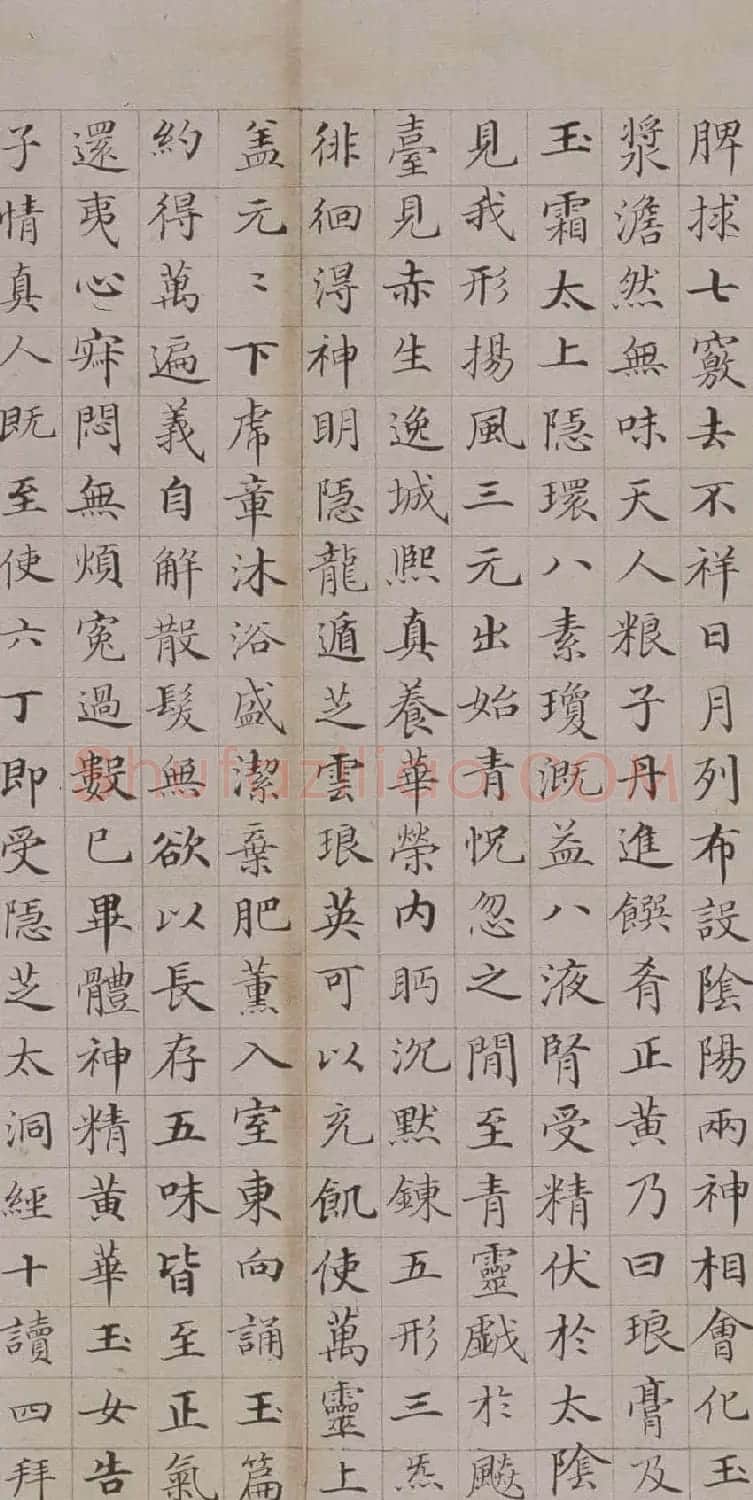 脾捄七竅去不祥日月列布設陰陽兩神相會化玉
漿澹然無味天人粮子丹進饌肴正黄乃曰琅膏及
玉霜太上隱環八素瓊溉益八液腎受精伏於太陰
見我形揚風三元出始青怳忽之間至青靈戯於飈
臺見赤生逸城熈真養華榮内眄沉默錬五形三炁
徘徊淂神明隠龍遁芝雲琅英可以充飢使萬靈上
盖元〻下席章沐浴盛潔棄肥薰入室東向誦玉篇
約得萬遍義自解散髮無欲以長存五味皆至正氣
還夷心寂悶無煩寃過數已畢體神精黄華玉女告
子情真人既至使六丁即受隠芝太洞經十讀四拜
Shufaziliao.COM